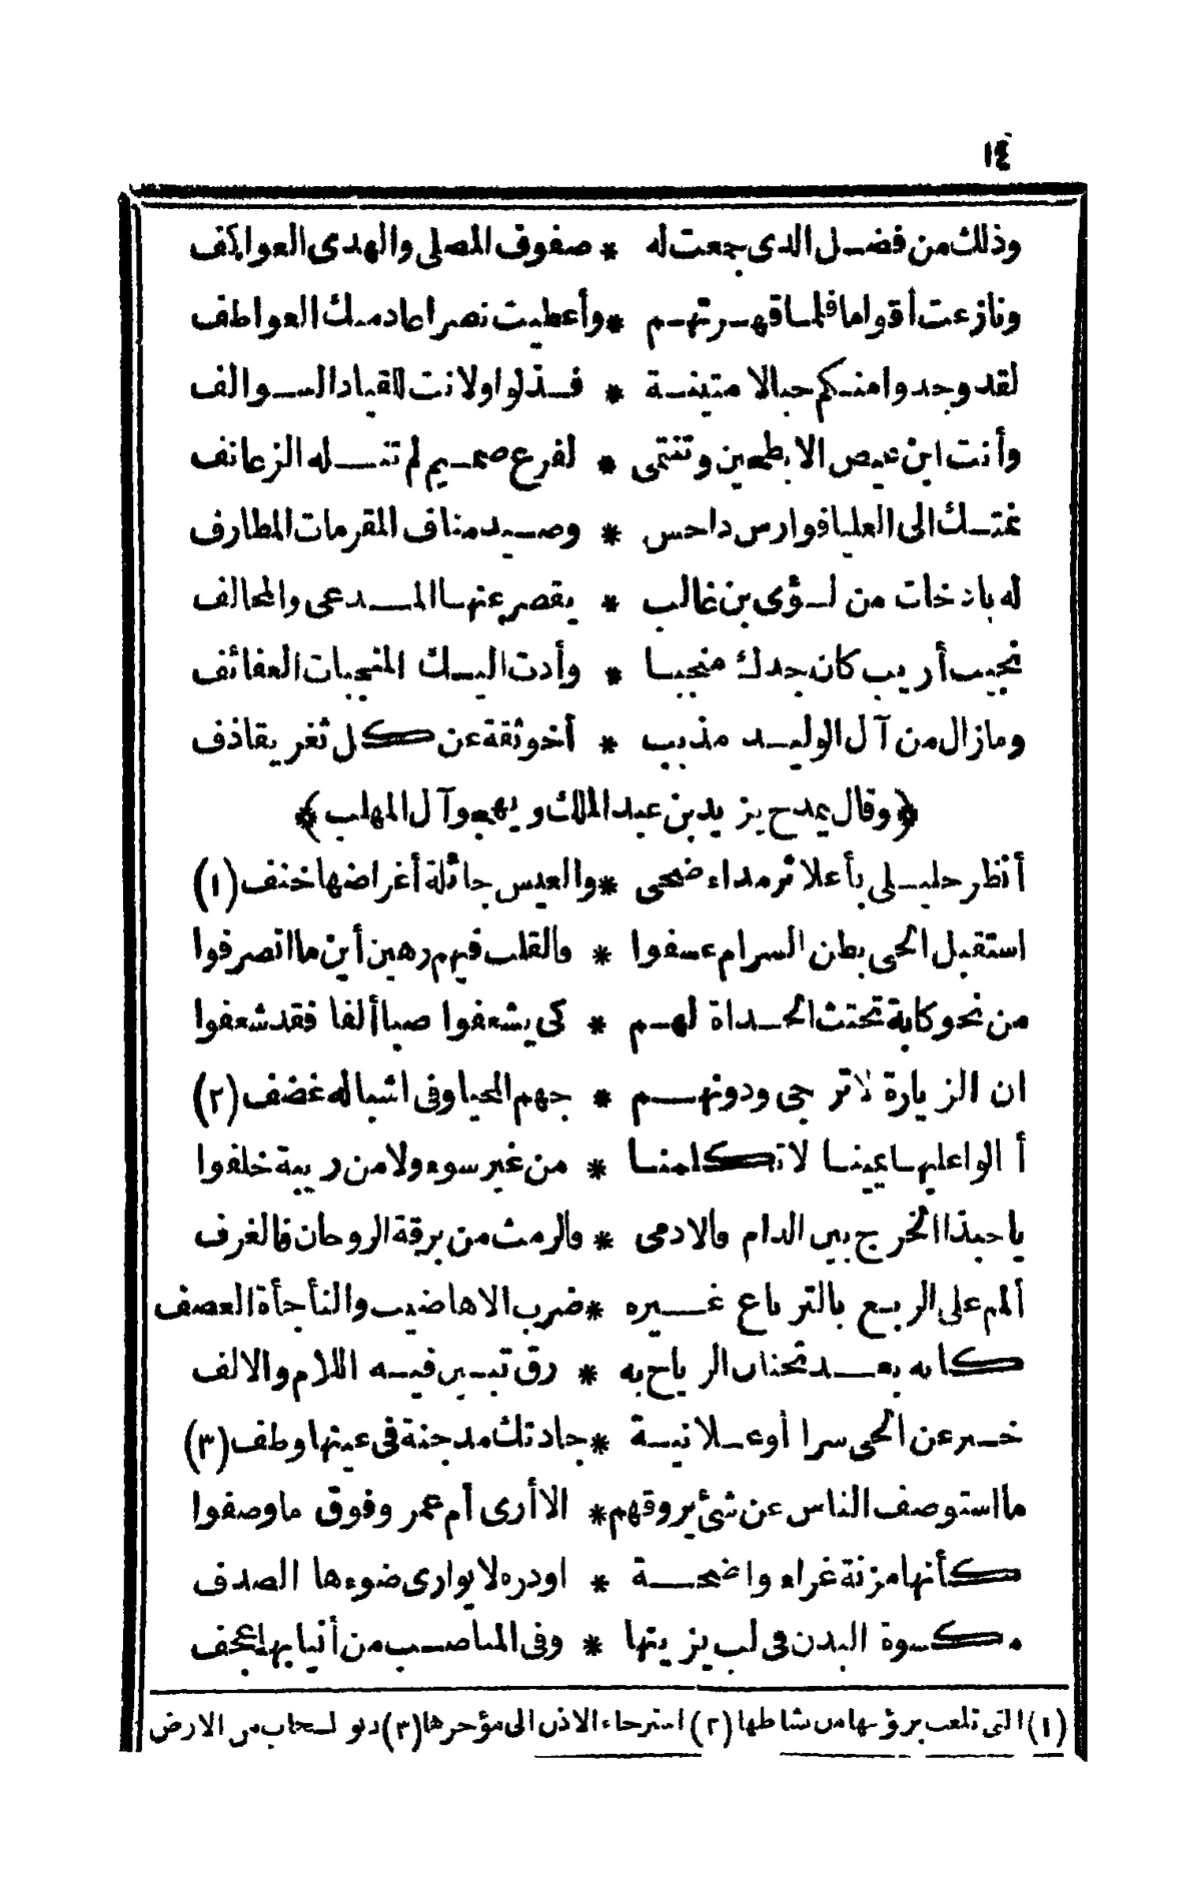 ١٤
وذلك من فضل الذى جمعت له * صفوف المصلى والهدى العواكف
ونازعت أقواما فلما قهرتهم * وأعطيت نصرا عاد منك العواطف
لقد وجدوا منكم حبالا متينة * فذلوا ولانت للقياد السوالف
وأنت ابن عيص الابطحين وتنتمى * لفرع صميم لم تنله الزعانف
نمتك الى العليا فوارس داحس * وصيد مناف المقرمات المطارف
له باذخات من لؤى بن غالب * يقصر عنها المدعى والمخالف
نجيب أريب كان جدك منجبا * وأدت اليك المنجبات العفائف
ومازال من آل الوليد مذبب * أخوثقة عن كل ثغر يقاذف
﴿وقال يمدح يزيد بن عبد الملك ويهجو آل المهلب﴾
أنظر خليلى بأعلا ثرمداء ضحى * والعيس جائلة أغراضها خنف (١)
استقبل الحى بطن السرام عسفوا * فالقلب فيهم رهين أين ما انصرفوا
من نحو كابة تحتث الحداة لهم * كى يشعفوا صبا ألفا فقد شعفوا
ان الزيارة لا ترجى ودونهم * جهم المحيا وفى اشباله غضف (٢)
أ الوا عليها يمينا لا تكلمنا * من غير سوء ولا من ريبة خلفوا
يا حبذا الخرج بين الدام فالادمى * فالرمث من برقة الروحان فالغرف
ألمم على الربع بالترباع غيره * ضرب الاهاضيب والنأجأة العصف
كانه بعد تحنان الرياح به * رق تبين فيه اللام والالف
خبر عن الحى سرا أو علانية * جادتك مدجنة فى عينها وطف (٣)
ما استوصف الناس عن شئ يروقهم * الا أرى أم عمر وفوق ما وصفوا
كأنها مزنة غراء واضحة * او دره لا يوارى ضوءها الصدف
مكسوة البدن فى لب يزينها * وفى المناصب من أنيابها عجف
(١) التى تلعب برؤسها من نشاطها (٢) استرخاء الاذن الى مؤخرها (٣) دنو السحاب من الارض